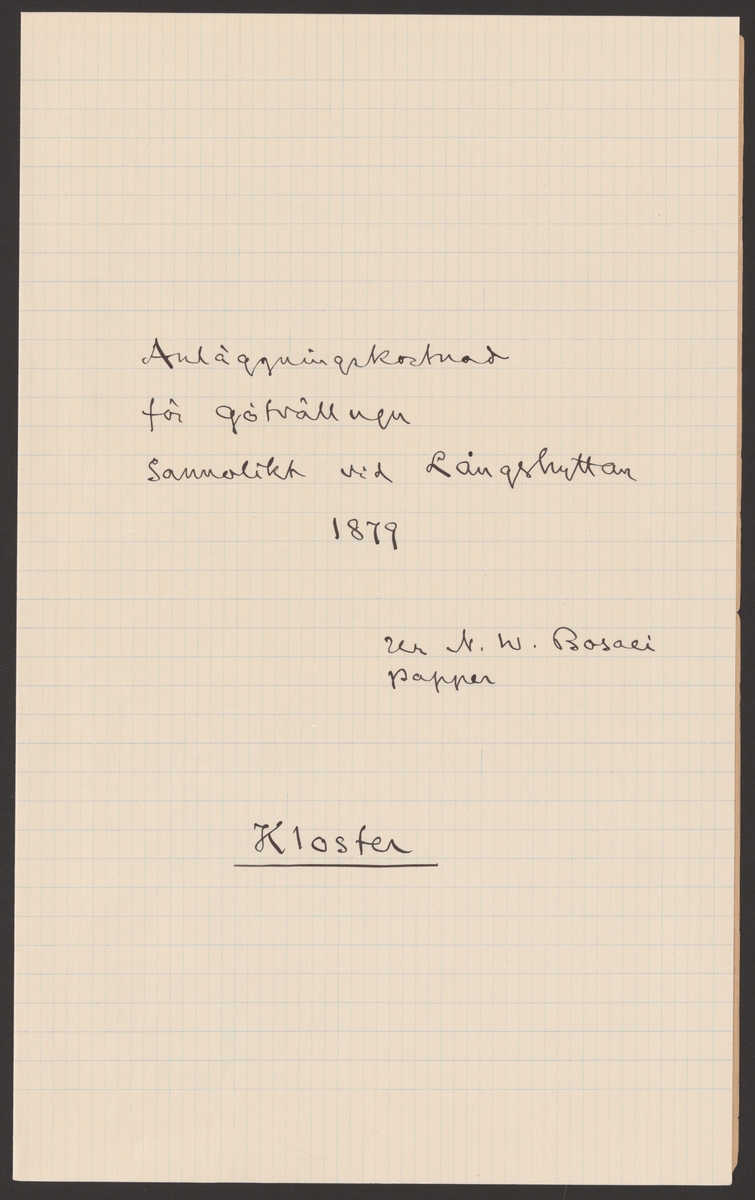 Anläggningskostnad
för götvällugn
Sannolikt vid Långshyttan
1879
Ur N. W. Bosaei
papper
Kloster